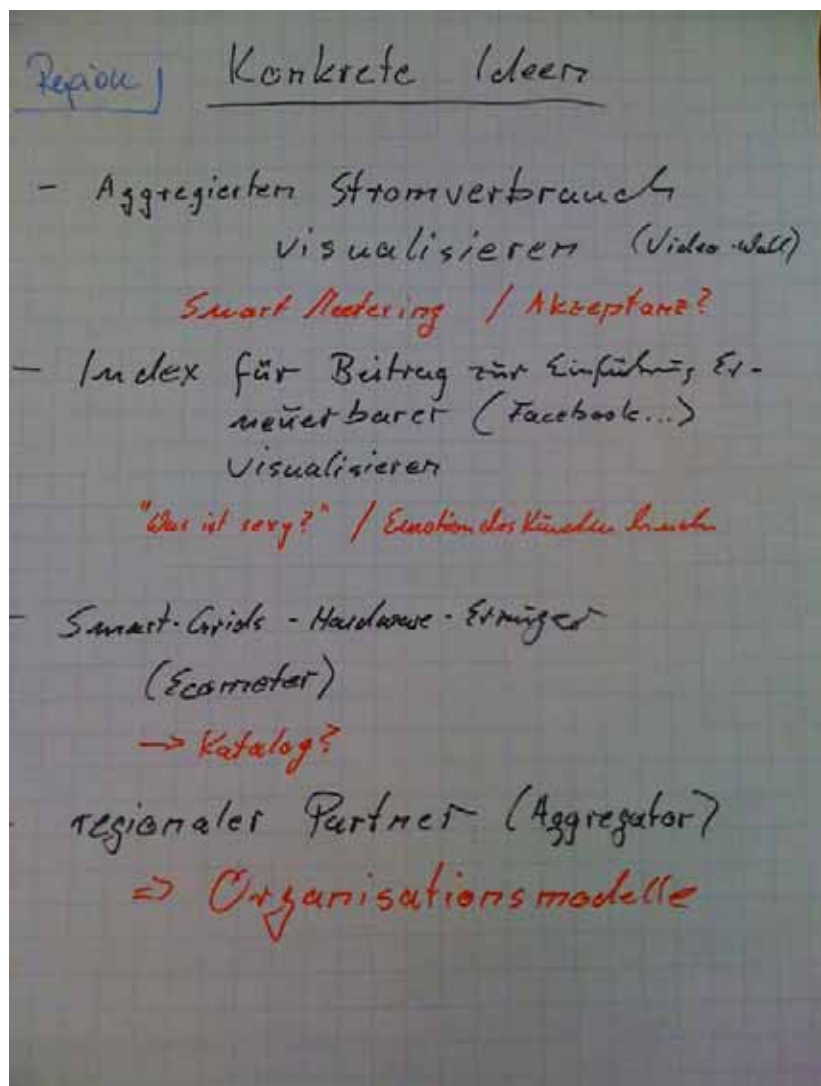 Region Konkrete Ideen
- Aggregierten Stromverbrauch
visualisieren (Video-Wall)
Smart Metering / Akzeptanz?
- Index für Beitrag zur Einführung Er-
neuerbarer (Facebook...)
visualisieren
"Was ist sexy?" / Emotion des Kunden
- Smart-Grids-Hardware-
(Ecometer)
-> Katalog?
- regionaler Partner (Aggregator)
=> Organisationsmodelle